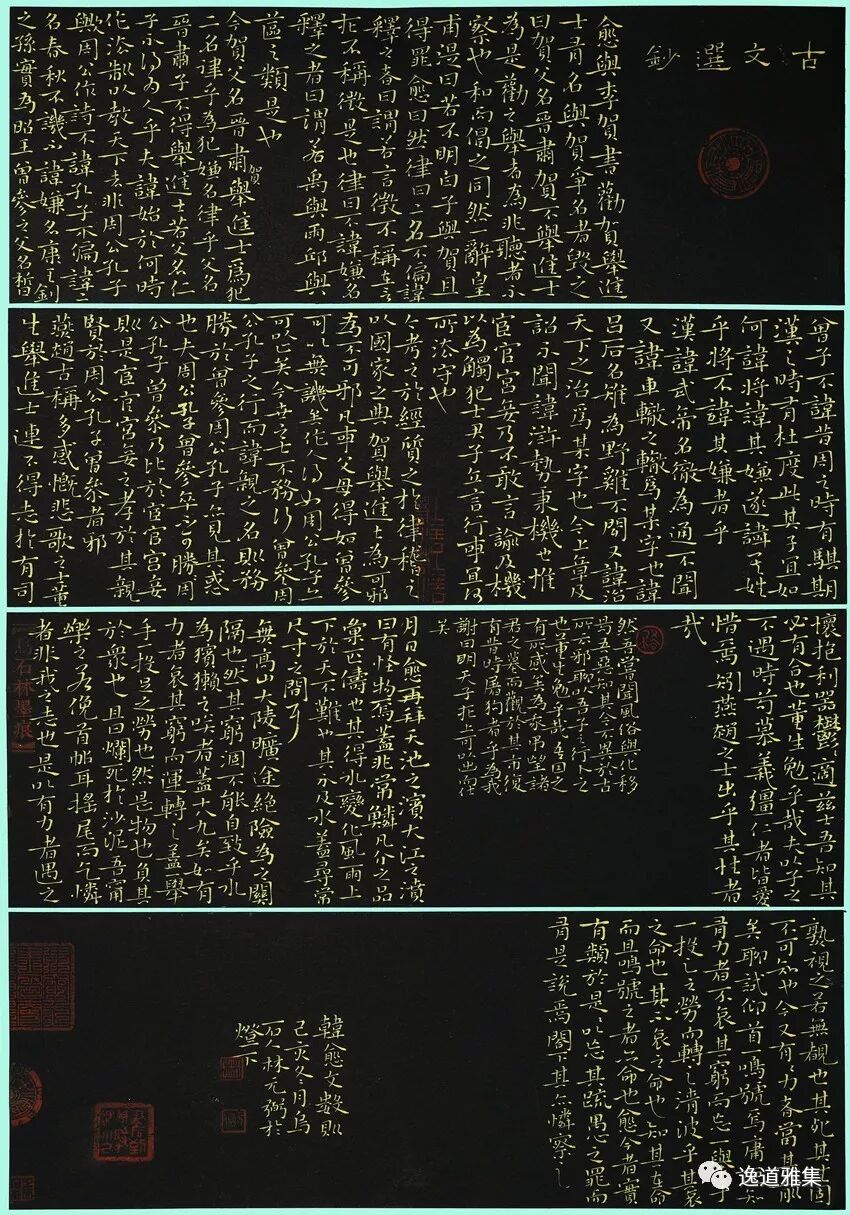 古文選鈔
愈與李賀書勸賀舉進
士有名與賀爭名者毀之
曰賀父名晉肅賀不舉進士
為是勸之舉者為非聽者不
察也和而倡之同然一辭皇
甫湜曰若不明白子與賀且
得罪愈曰然律曰二名不偏諱
釋之者曰謂若言徵不稱在言
在不稱徵是也律曰不諱嫌名
釋之者曰謂若禹與雨邱與
蓲之類是也
今賀父名晉肅賀舉進士為犯
二名律乎為犯嫌名律乎父名
晉肅子不得舉進士若父名仁
子不得為人乎夫諱始於何時
作法制以教天下者非周公孔子
歟周公作詩不諱孔子不偏諱二
名春秋不譏不諱嫌名康王釗
之孫實為昭王曾參之父名晳
曾子不諱昔周之時有騏期
漢之時有杜度此其子宜如
何諱將諱其嫌遂諱其姓
乎將不諱其嫌者乎
漢諱武帝名徹為通不聞
又諱車轍之轍為某字也諱
呂后名雉為野雞不聞又諱治
天下之治為某字也今上章及
詔不聞諱滸勢秉機也惟
宦官宮妾乃不敢言諭及機
以為觸犯士君子立言行事宜何
所法守也
今考之於經質之於律稽之
以國家之典賀舉進士為可邪
為不可邪凡事父母得如曾參
可以無譏矣作人得如周公孔子亦
可以已矣今世之士不務行曾參周
公孔子之行而諱親之名則務
勝於曾參周公孔子亦見其惑
也夫周公孔子曾參卒不可勝周
公孔子曾參乃比於宦官宮妾
則是宦官宮妾之孝於其親
賢於周公孔子曾參者邪
燕趙古稱多感慨悲歌之士董
生舉進士連不得志於有司
懷抱利器鬱鬱適茲土吾知其
必有合也董生勉乎哉夫以子之
不遇時苟慕義彊仁者皆愛
惜焉矧燕趙之士出乎其性者
哉
然吾嘗聞風俗與化移
易吾惡知其今不異於古
所云邪聊以吾子之行卜之
也董生勉乎哉吾因之
有所感矣為我弔望諸
君之墓而觀於其市復
有昔時屠狗者乎為我
謝曰明天子在上可以出而仕
矣
月日愈再拜天池之濱大江之濆
曰有怪物焉蓋非常鱗凡介之品
彙匹儔也其得水變化風雨上
下於天不難也其不及水蓋尋常
尺寸之間耳
無高山大陵曠途絕險為之關
隔也然其窮涸不能自致乎水
為獱獺之笑者蓋十八九矣如有
力者哀其窮而運轉之蓋一舉
手一投足之勞也然是物也負其
於衆也且曰爛死於沙泥吾甯
樂之若俛首帖耳搖尾而乞憐
者非我之志也是以有力者遇之
烏石林墨痕
熟視之若無覩也其死其生固
不可知也今又有有力者當其前
矣聊試仰首一鳴號焉庸詎知
有力者不哀其窮而忘一舉手
一投足之勞而轉之清波乎其哀
之命也其不哀之命也知其在命
而且鳴號之者亦命也愈今者實
有類於是是以忘其疏愚之罪而
有是說焉閣下其亦憐察之
韓愈文數則
己亥冬月烏
石人林元弼於
燈下
逸道雅集